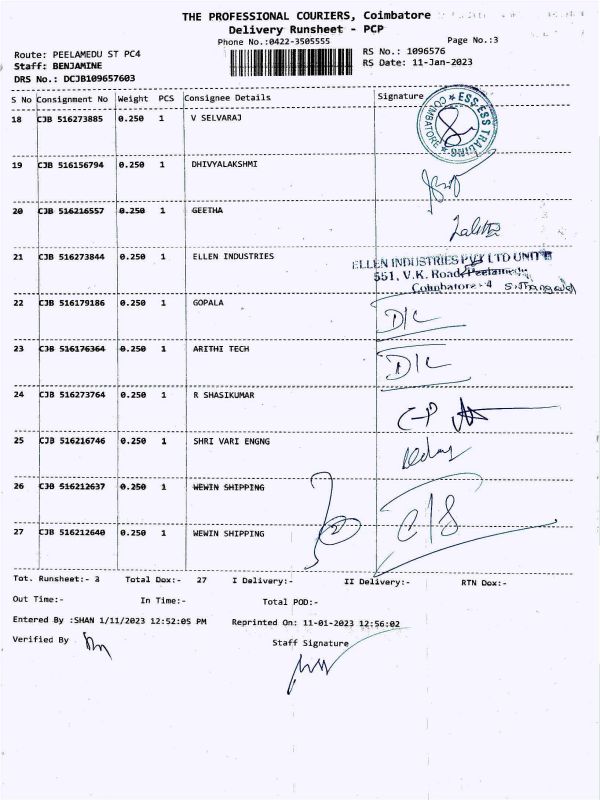 THE PROFESSIONAL COURIERS, Coimbatore
Delivery Runsheet - PCP
Phone No.:0422-3505555
Page No.:3
Route: PEELAMEDU ST PC4
RS No.: 1096576
Staff: BENJAMINE
RS Date: 11-Jan-2023
DRS No.: DCJB109657603
S No Consignment No Weight PCS Consignee Details Signature
18 CJB 516273885 0.250 1 V SELVARAJ
ESS-ESS TRADING COIMBATORE
19 CJB 516156794 0.250 1 DHIVYALAKSHMI
20 CJB 516216557 0.250 1 GEETHA
Lalitha
21 CJB 516273844 0.250 1 ELLEN INDUSTRIES
ELLEN INDUSTRIES PVT LTD UNIT
551, V.K. Road, Peelamedu
Coimbatore - 4
22 CJB 516179186 0.250 1 GOPALA
D/C
23 CJB 516176364 0.250 1 ARITHI TECH
D/C
24 CJB 516273764 0.250 1 R SHASIKUMAR
25 CJB 516216746 0.250 1 SHRI VARI ENGNG
26 CJB 516212637 0.250 1 WEWIN SHIPPING
27 CJB 516212640 0.250 1 WEWIN SHIPPING
Tot. Runsheet:- 3 Total Dox:- 27 I Delivery:- II Delivery:- RTN Dox:-
Out Time:- In Time:- Total POD:-
Entered By :SHAN 1/11/2023 12:52:05 PM Reprinted On: 11-01-2023 12:56:02
Verified By
Staff Signature